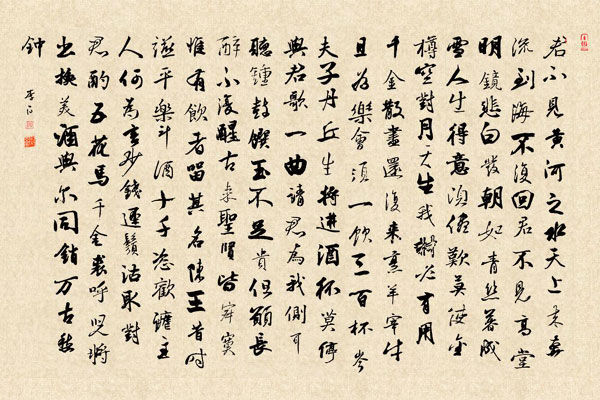 君不見黄河之水天上来奔
流到海不復回君不見高堂
明鏡悲白发朝如青丝暮成
雪人生得意须盡歡莫使金
樽空對月天生我材必有用
千金散盡還復来烹羊宰牛
且为樂會须一飲三百杯岑
夫子丹丘生將進酒杯莫停
與君歌一曲請君为我側耳
聽鐘鼓饌玉不足贵但願長
醉不復醒古来聖賢皆寂寞
惟有飲者留其名陳王昔时
宴平樂斗酒十千恣歡謔主
人何为言少錢逕须沽取對
君酌五花馬千金裘呼兒將
出换美酒與尔同銷万古愁
钟